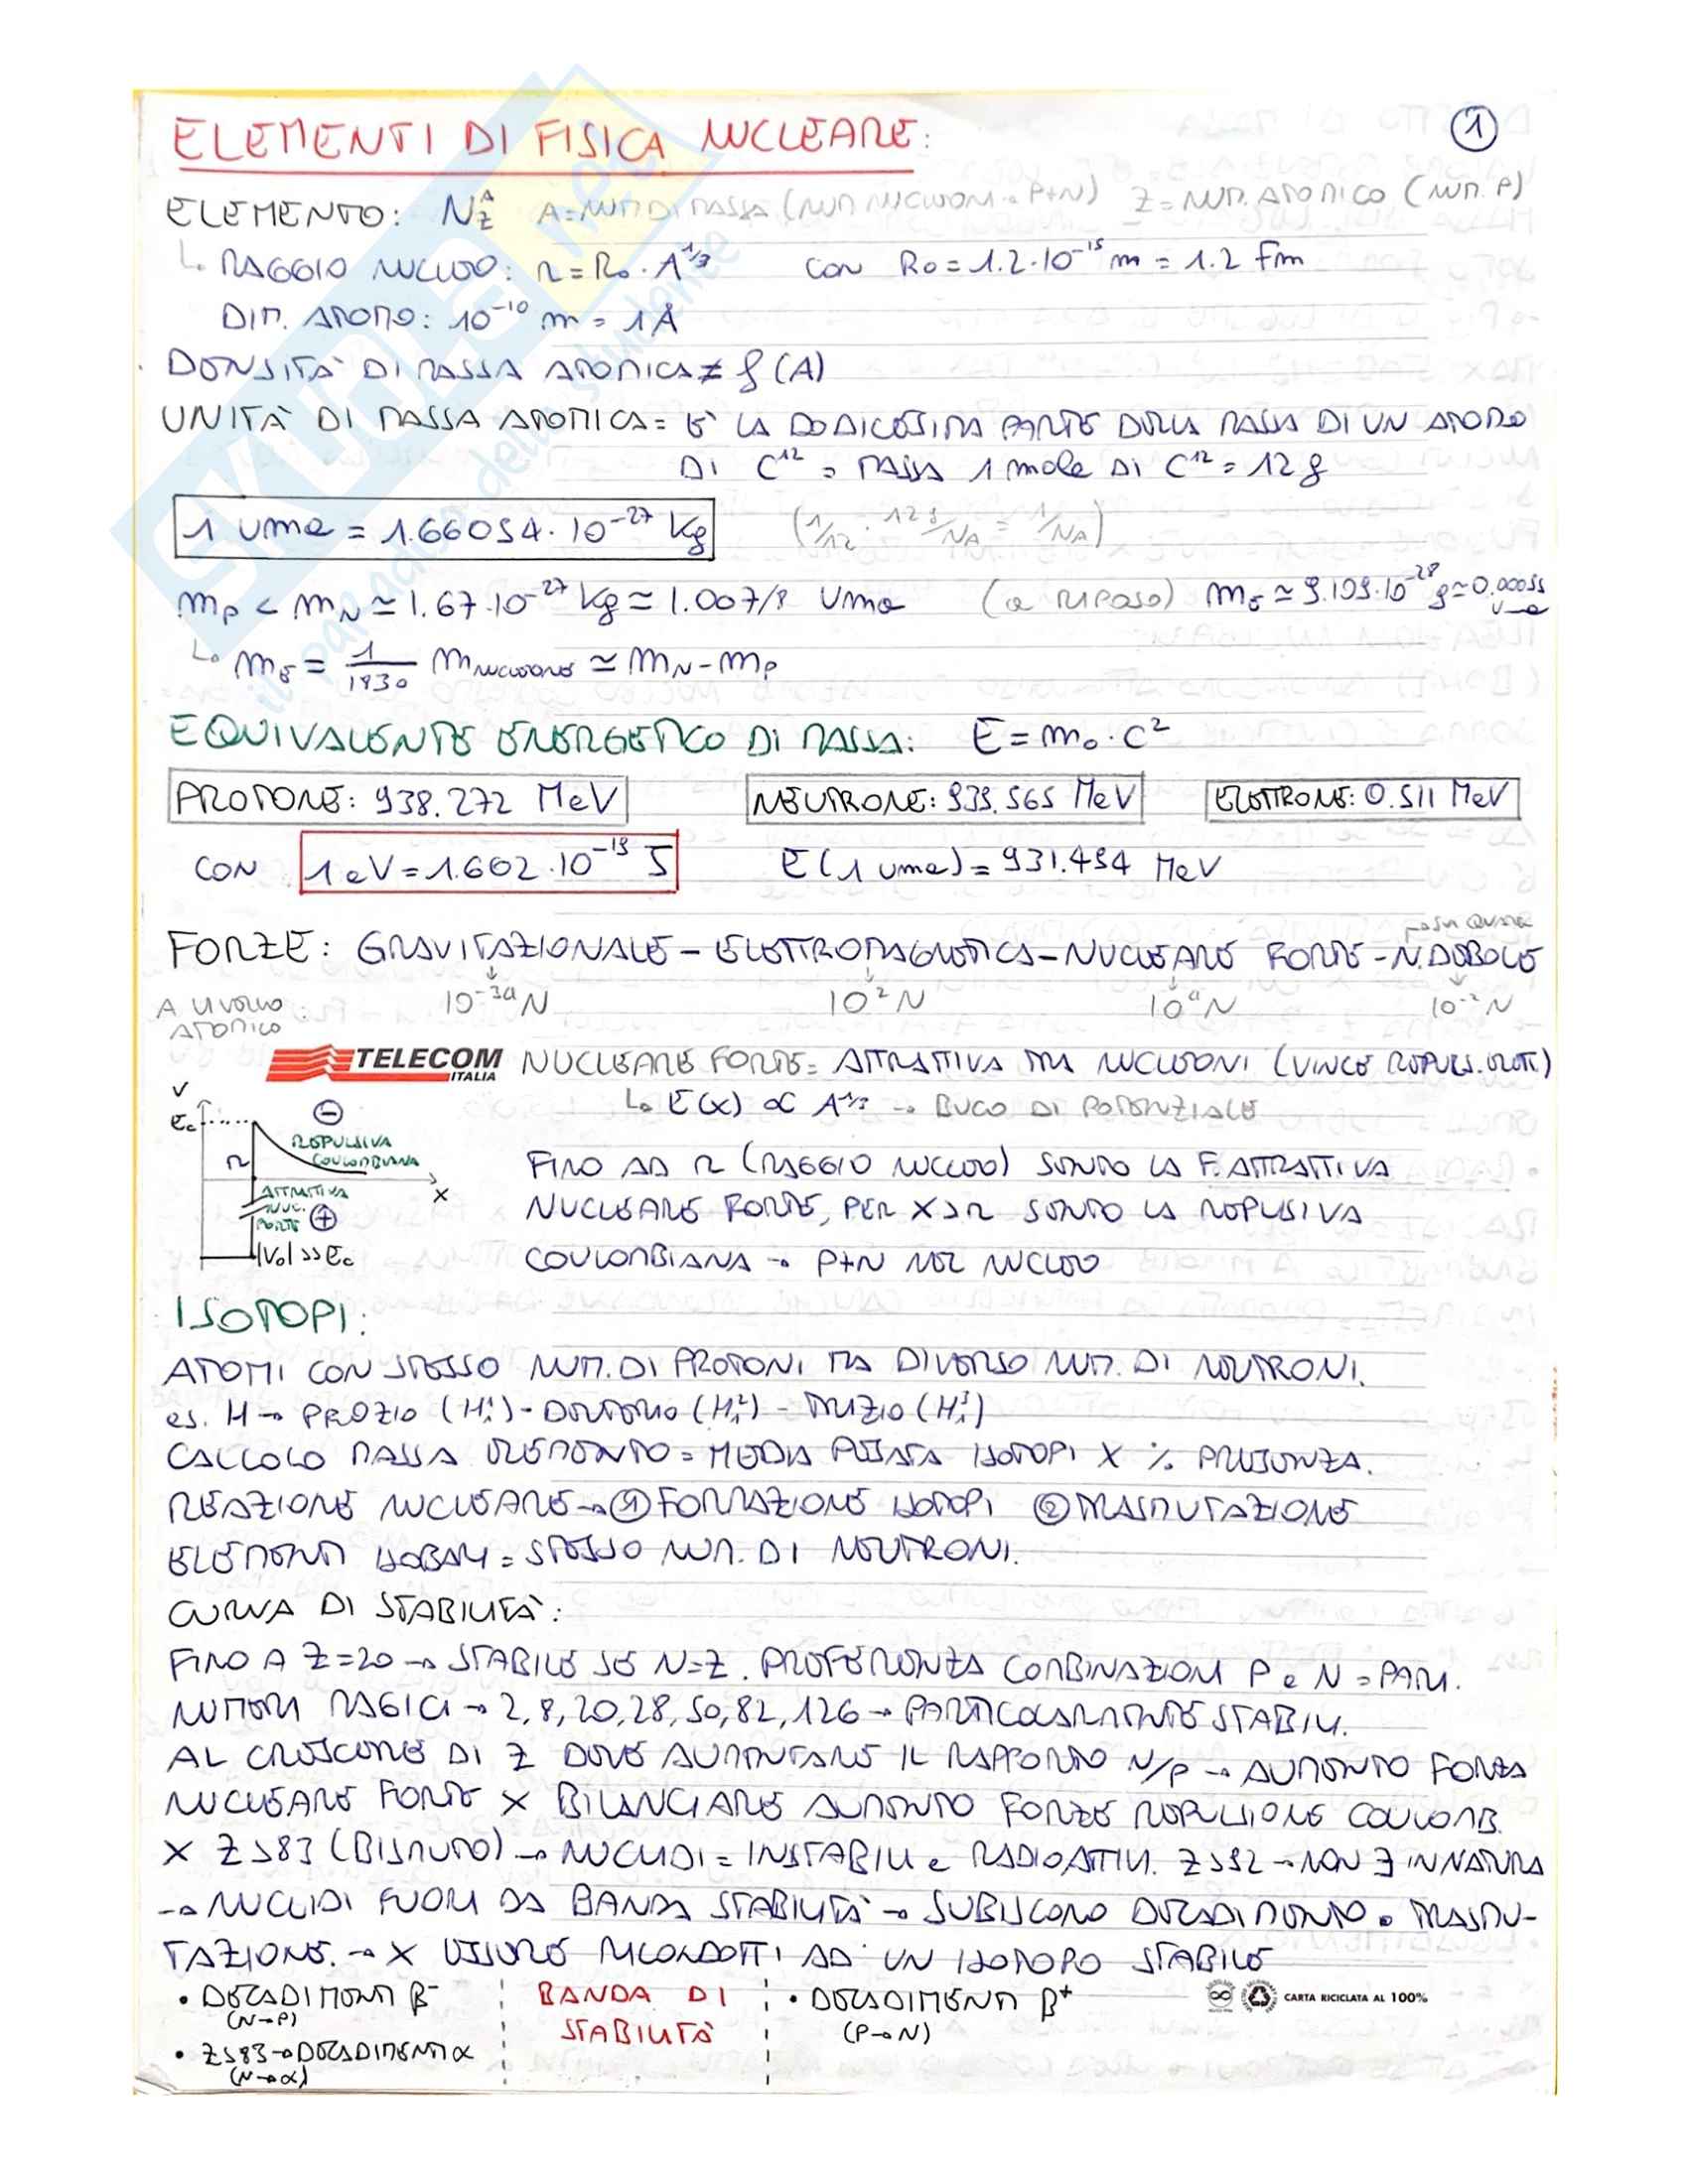 ELEMENTI DI FISICA NUCLEARE: 1
ELEMENTO: N^A_Z A=NUM DI MASSA (NUM NUCLEONI = P+N) Z=NUM. ATOMICO (NUM. P)
↳ RAGGIO NUCLEO: r=R₀·A^1/3 CON R₀=1.2·10⁻¹⁵ m = 1.2 Fm
DIM. ATOMO: 10⁻¹⁰ m = 1 Å
DENSITÀ DI MASSA ATOMICA ≠ f(A)
UNITÀ DI MASSA ATOMICA = È LA DODICESIMA PARTE DELLA MASSA DI UN ATOMO
DI C¹² = MASSA 1 mole DI C¹² = 12 g
1 uma = 1.66054·10⁻²⁷ Kg (1/12 · 12g/NA = 1/NA)
mP < mN ≃ 1.67·10⁻²⁷ Kg ≃ 1.007/8 uma (a RIPOSO) mE ≃ 9.109·10⁻²⁸ g ≃ 0.00055 uma
↳ mE = 1/1830 mNUCLEONE ≃ mN-mP
EQUIVALENTE ENERGETICO DI MASSA: E = m₀·c²
PROTONE: 938.272 MeV NEUTRONE: 939.565 MeV ELETTRONE: 0.511 MeV
CON 1 eV = 1.602·10⁻¹⁹ J E(1 uma) = 931.494 MeV
FORZE: GRAVITAZIONALE - ELETTROMAGNETICA - NUCLEARE FORTE - N. DEBOLE
A LIVELLO ATOMICO: 10² N 10⁻² N
TELECOM ITALIA
NUCLEARE FORTE = ATTRATTIVA TRA NUCLEONI (VINCE REPULS. ELETT)
↳ E(x) ∝ A^1/3 → BUCO DI POTENZIALE
V
Ec
⊖
REPULSIVA
COULOMBIANA
r
x
ATTRATTIVA
NUC.
FORTE ⊕
|V₀| >> Ec
FINO AD r (RAGGIO NUCLEO) SENTO LA F. ATTRATTIVA
NUCLEARE FORTE, PER X>r SENTO LA REPULSIVA
COULOMBIANA → P+N NEL NUCLEO
ISOTOPI:
ATOMI CON STESSO NUM. DI PROTONI MA DIVERSO NUM. DI NEUTRONI.
es. H → PROZIO (H¹₁) - DEUTERIO (H²₁) - TRIZIO (H³₁)
CALCOLO MASSA ELEMENTO = MEDIA PESATA ISOTOPI X % PRESENZA.
REAZIONE NUCLEARE → ① FORMAZIONE ISOTOPI ② TRASMUTAZIONE
ELEMENTI ISOBARI = STESSO NUM. DI NEUTRONI.
CURVA DI STABILITÀ:
FINO A Z=20 → STABILE SE N=Z. PREFERENZA COMBINAZIONI P e N = PARI.
NUMERI MAGICI → 2, 8, 20, 28, 50, 82, 126 → PARTICOLARMENTE STABILI.
AL CRESCERE DI Z DEVE AUMENTARE IL RAPPORTO N/P → AUMENTO FORZA
NUCLEARE FORTE X BILANCIARE AUMENTO FORZE REPULSIONE COULOMB.
X Z>83 (BISMUTO) → NUCLIDI = INSTABILI e RADIOATTIVI. Z>92 → NON ∃ IN NATURA
→ NUCLIDI FUORI DA BANDA STABILITÀ → SUBISCONO DECADIMENTO o TRASMU-
TAZIONE. → X ESSERE RICONDOTTI AD UN ISOTOPO STABILE
• DECADIMENTI β⁻ BANDA DI • DECADIMENTI β⁺
(N→P) STABILITÀ (P→N)
• Z>83 → DECADIMENTI α
(N→α)
CARTA RICICLATA AL 100%